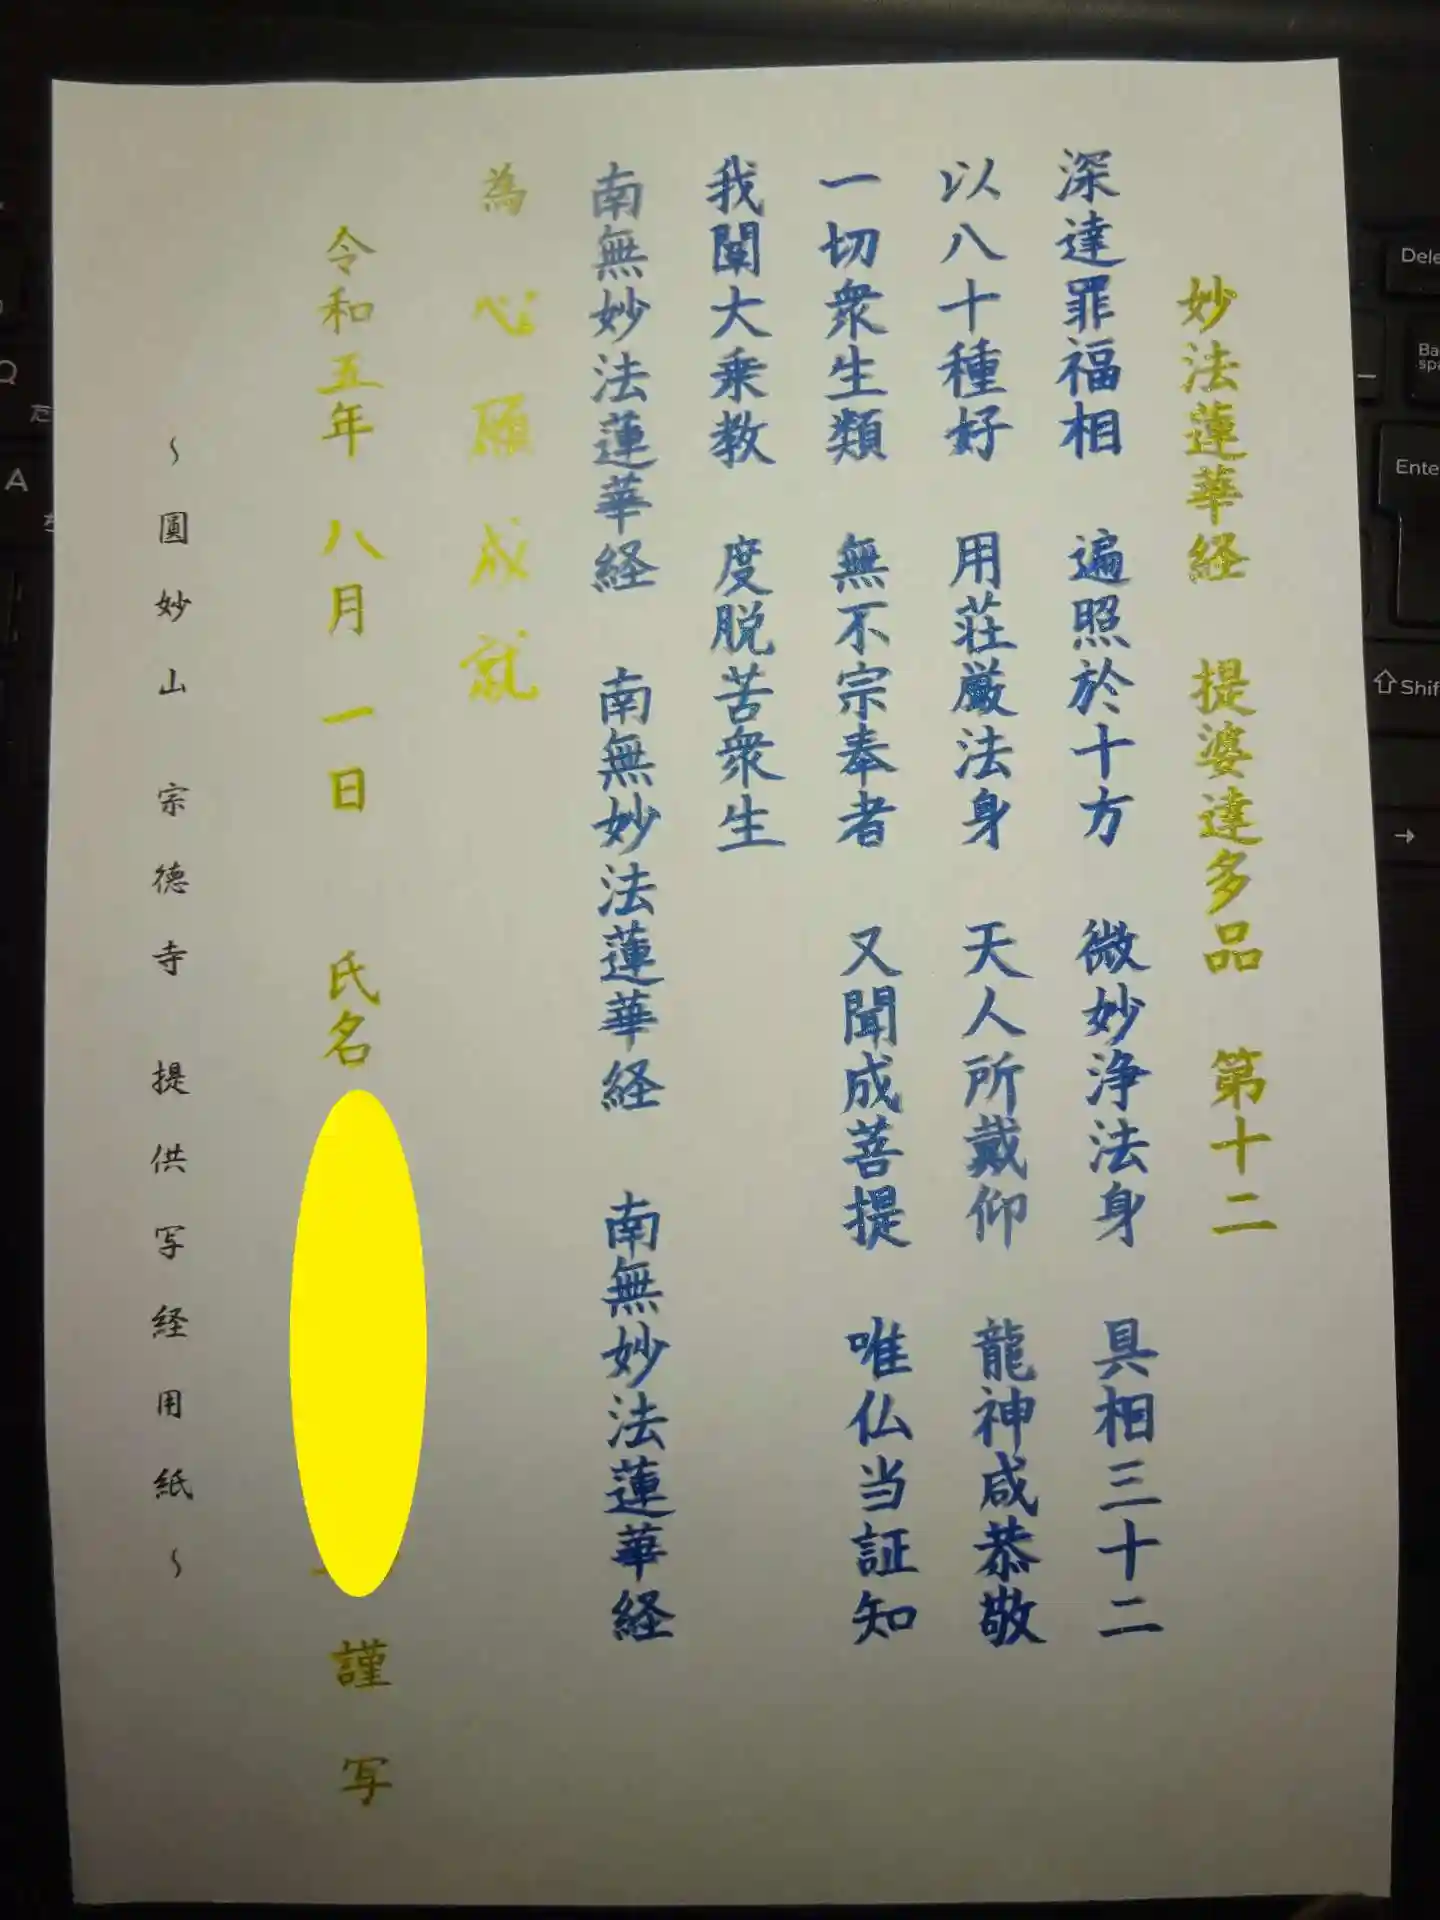 妙法蓮華経　提婆達多品　第十二
深達罪福相　遍照於十方　微妙浄法身　具相三十二
以八十種好　用荘厳法身　天人所戴仰　龍神咸恭敬
一切衆生類　無不宗奉者　又聞成菩提　唯仏当証知
我闡大乗教　度脱苦衆生
南無妙法蓮華経　南無妙法蓮華経　南無妙法蓮華経
為　心願成就
令和五年　八月　一日　氏名　謹写
～圓妙山　宗徳寺　提供写経用紙～
Dele
Enter
Shif
Q
A